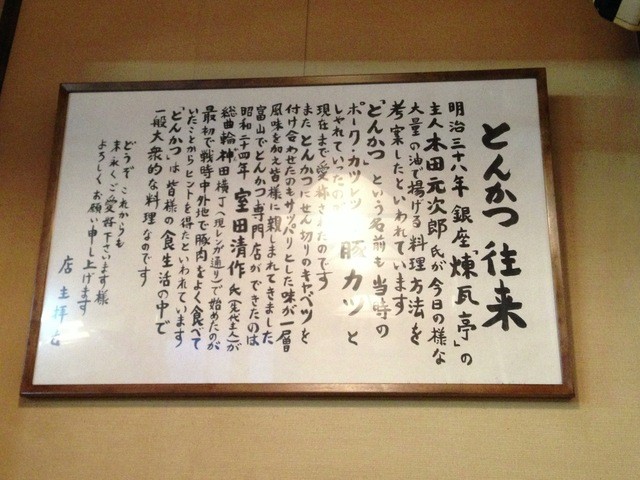 とんかつ往来
明治三十八年銀座「煉瓦亭」の
主人木田元次郎氏が今日の様な
大量の油で揚げる料理方法を
考案したといわれています
「とんかつ」という名前も当時の
ポーク・カツレツ 豚カツと
しゃれていったの
現在まで愛称されたのです
またとんかつにせん切りのキャベツを
付け合わせたのもサッパリとした味が一層
風味を加え皆様に親しまれてきました
富山でとんかつ専門店ができたのは
昭和二十四年 室田清作氏(先代主人)が
総曲輪神田横丁(現レンガ通り)で始めたのが
最初で戦時中外地で豚肉をよく食べて
いたことからヒントを得たといわれています
「とんかつ」は皆様の食生活の中で
一般大衆的な料理なのです
どうぞこれからも
末永くご愛好下さいます様
よろしくお願い申し上げます
店主拝